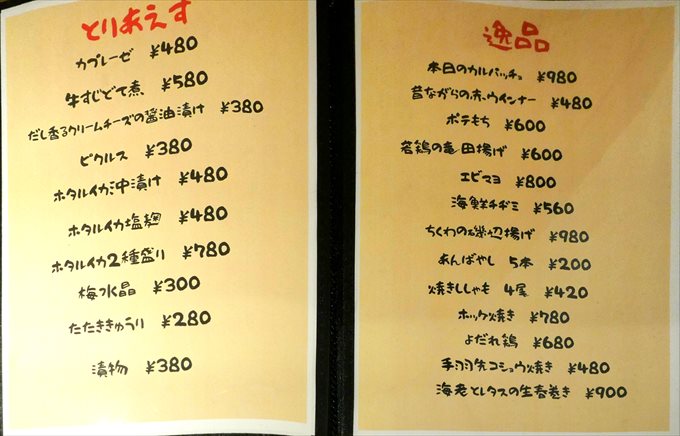 とりあえず
カプレーゼ ¥480
牛すじどて煮 ¥580
だし香るクリームチーズの醤油漬け ¥380
ピクルス ¥380
ホタルイカ沖漬け ¥480
ホタルイカ塩麹 ¥480
ホタルイカ2種盛り ¥780
梅水晶 ¥300
たたききゅうり ¥280
漬物 ¥380
逸品
本日のカルパッチョ ¥980
昔ながらの赤ウインナー ¥480
ポテもち ¥600
若鶏の竜田揚げ ¥600
エビマヨ ¥800
海鮮チヂミ ¥560
ちくわの磯辺揚げ ¥980
あんばやし 5本 ¥200
焼きししゃも 4尾 ¥420
ホッケ焼き ¥780
よだれ鶏 ¥680
手羽先コショウ焼き ¥480
海老とレタスの生春巻き ¥900